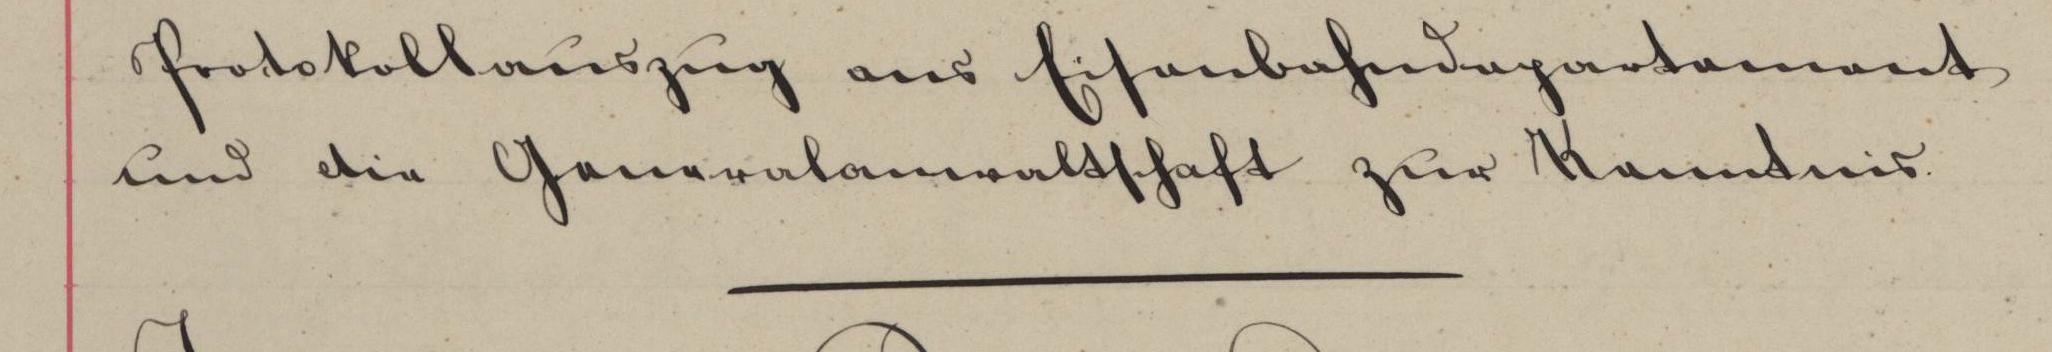 Protokollauszug ans Eisenbahndepartement
und die Generalanwaltschaft zur Kenntnis.